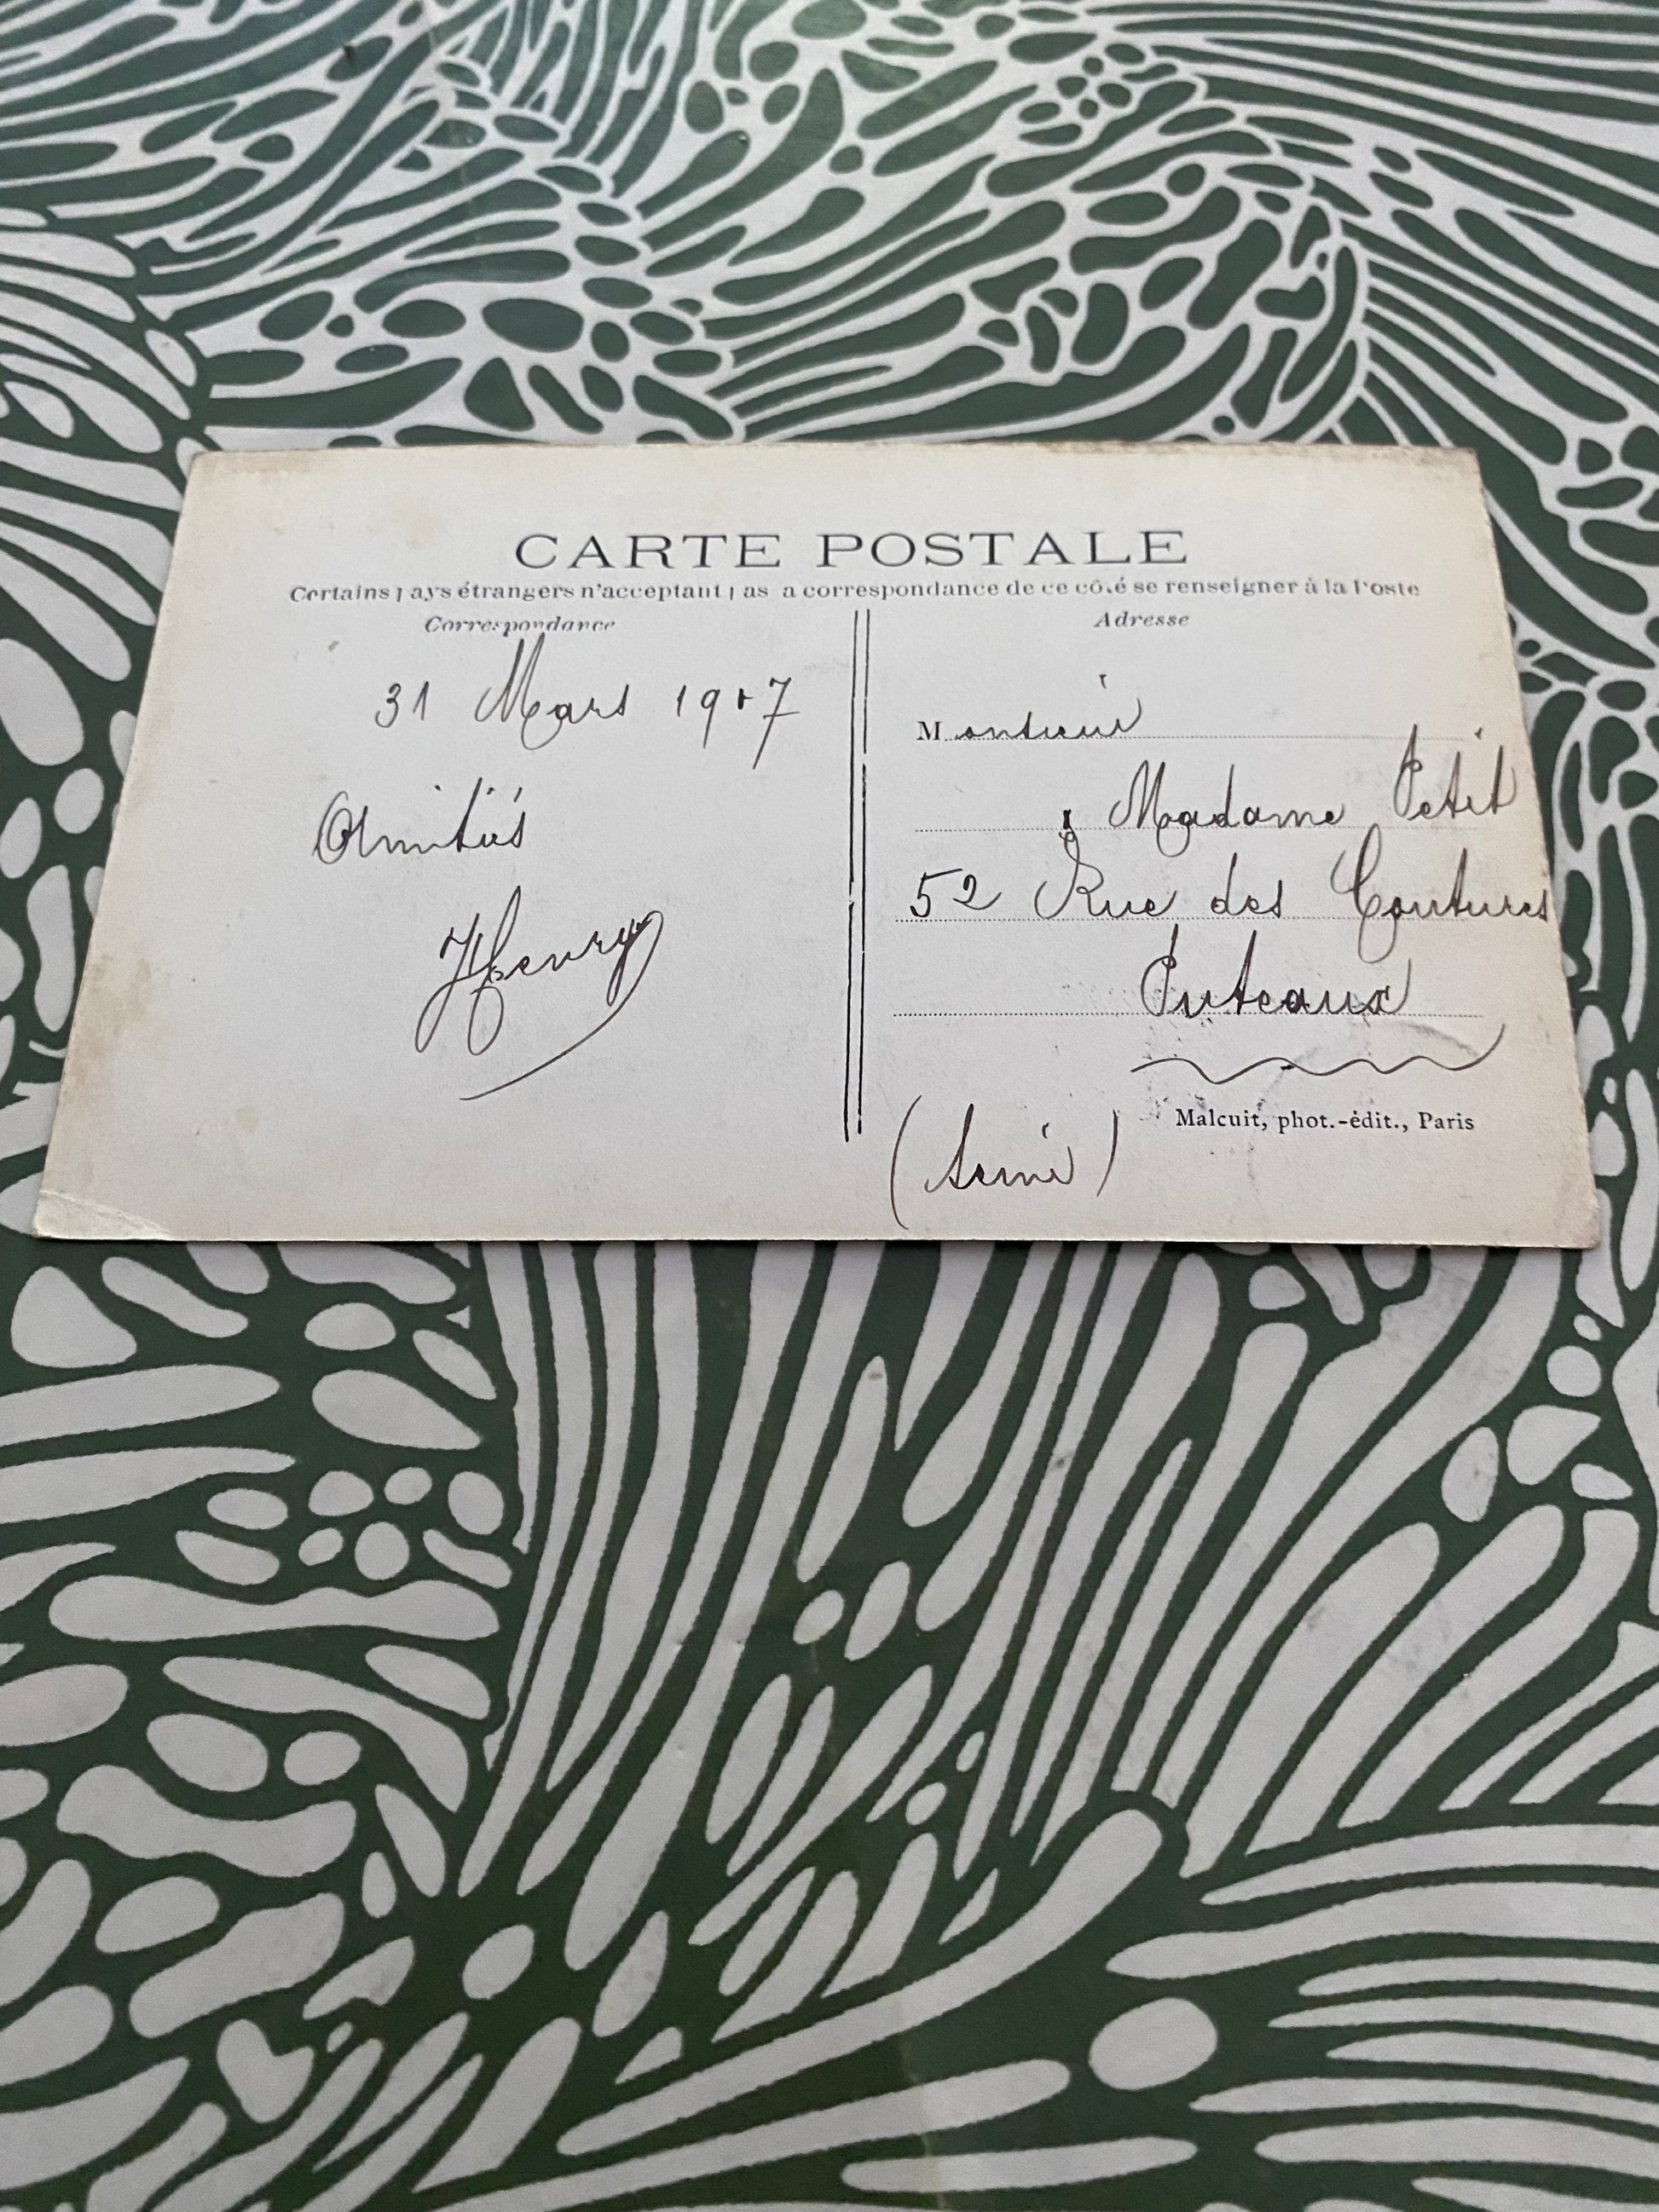 CARTE POSTALE
Certains pays étrangers n'acceptant pas la correspondance de ce côté se renseigner à la Poste
Correspondance
Adresse
31 Mars 1907
Amitiés
Henry
Monsieur
& Madame Petit
52 Rue des Coutures
Puteaux
Malcuit, phot.-édit., Paris
(Seine)